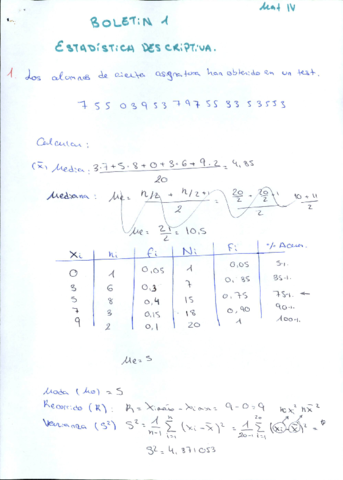 Mat IV
BOLETÍN 1
ESTADÍSTICA DESCRIPTIVA.
1 Los alumnos de cierta asignatura han obtenido en un test.
7 5 5 0 3 9 5 3 7 9 7 5 5 3 3 5 3 5 5 3
Calcular:
(x̄) Media: 3·7+5·8+0+3·6+9·2 / 20 = 4,85
Mediana: Me = n/2 + n/2+1 / 2 = 20/2 + 20/2+1 / 2 10+11 / 2
Me = 21/2 = 10,5
xi ni fi Ni Fi % Acum.
0 1 0,05 1 0,05 5%
3 6 0,3 7 0,35 35%
5 8 0,4 15 0,75 75% ←
7 3 0,15 18 0,90 90%
9 2 0,1 20 1 100%
Me = 5
Moda (Mo) = 5
Recorrido (R): R = xmáx - xmín = 9-0 = 9
Varianza (S²) S² = 1/n-1 Σ (xi - x̄)² = 1/20-1 Σ (xi - x̄)² =
S² = 4,371053